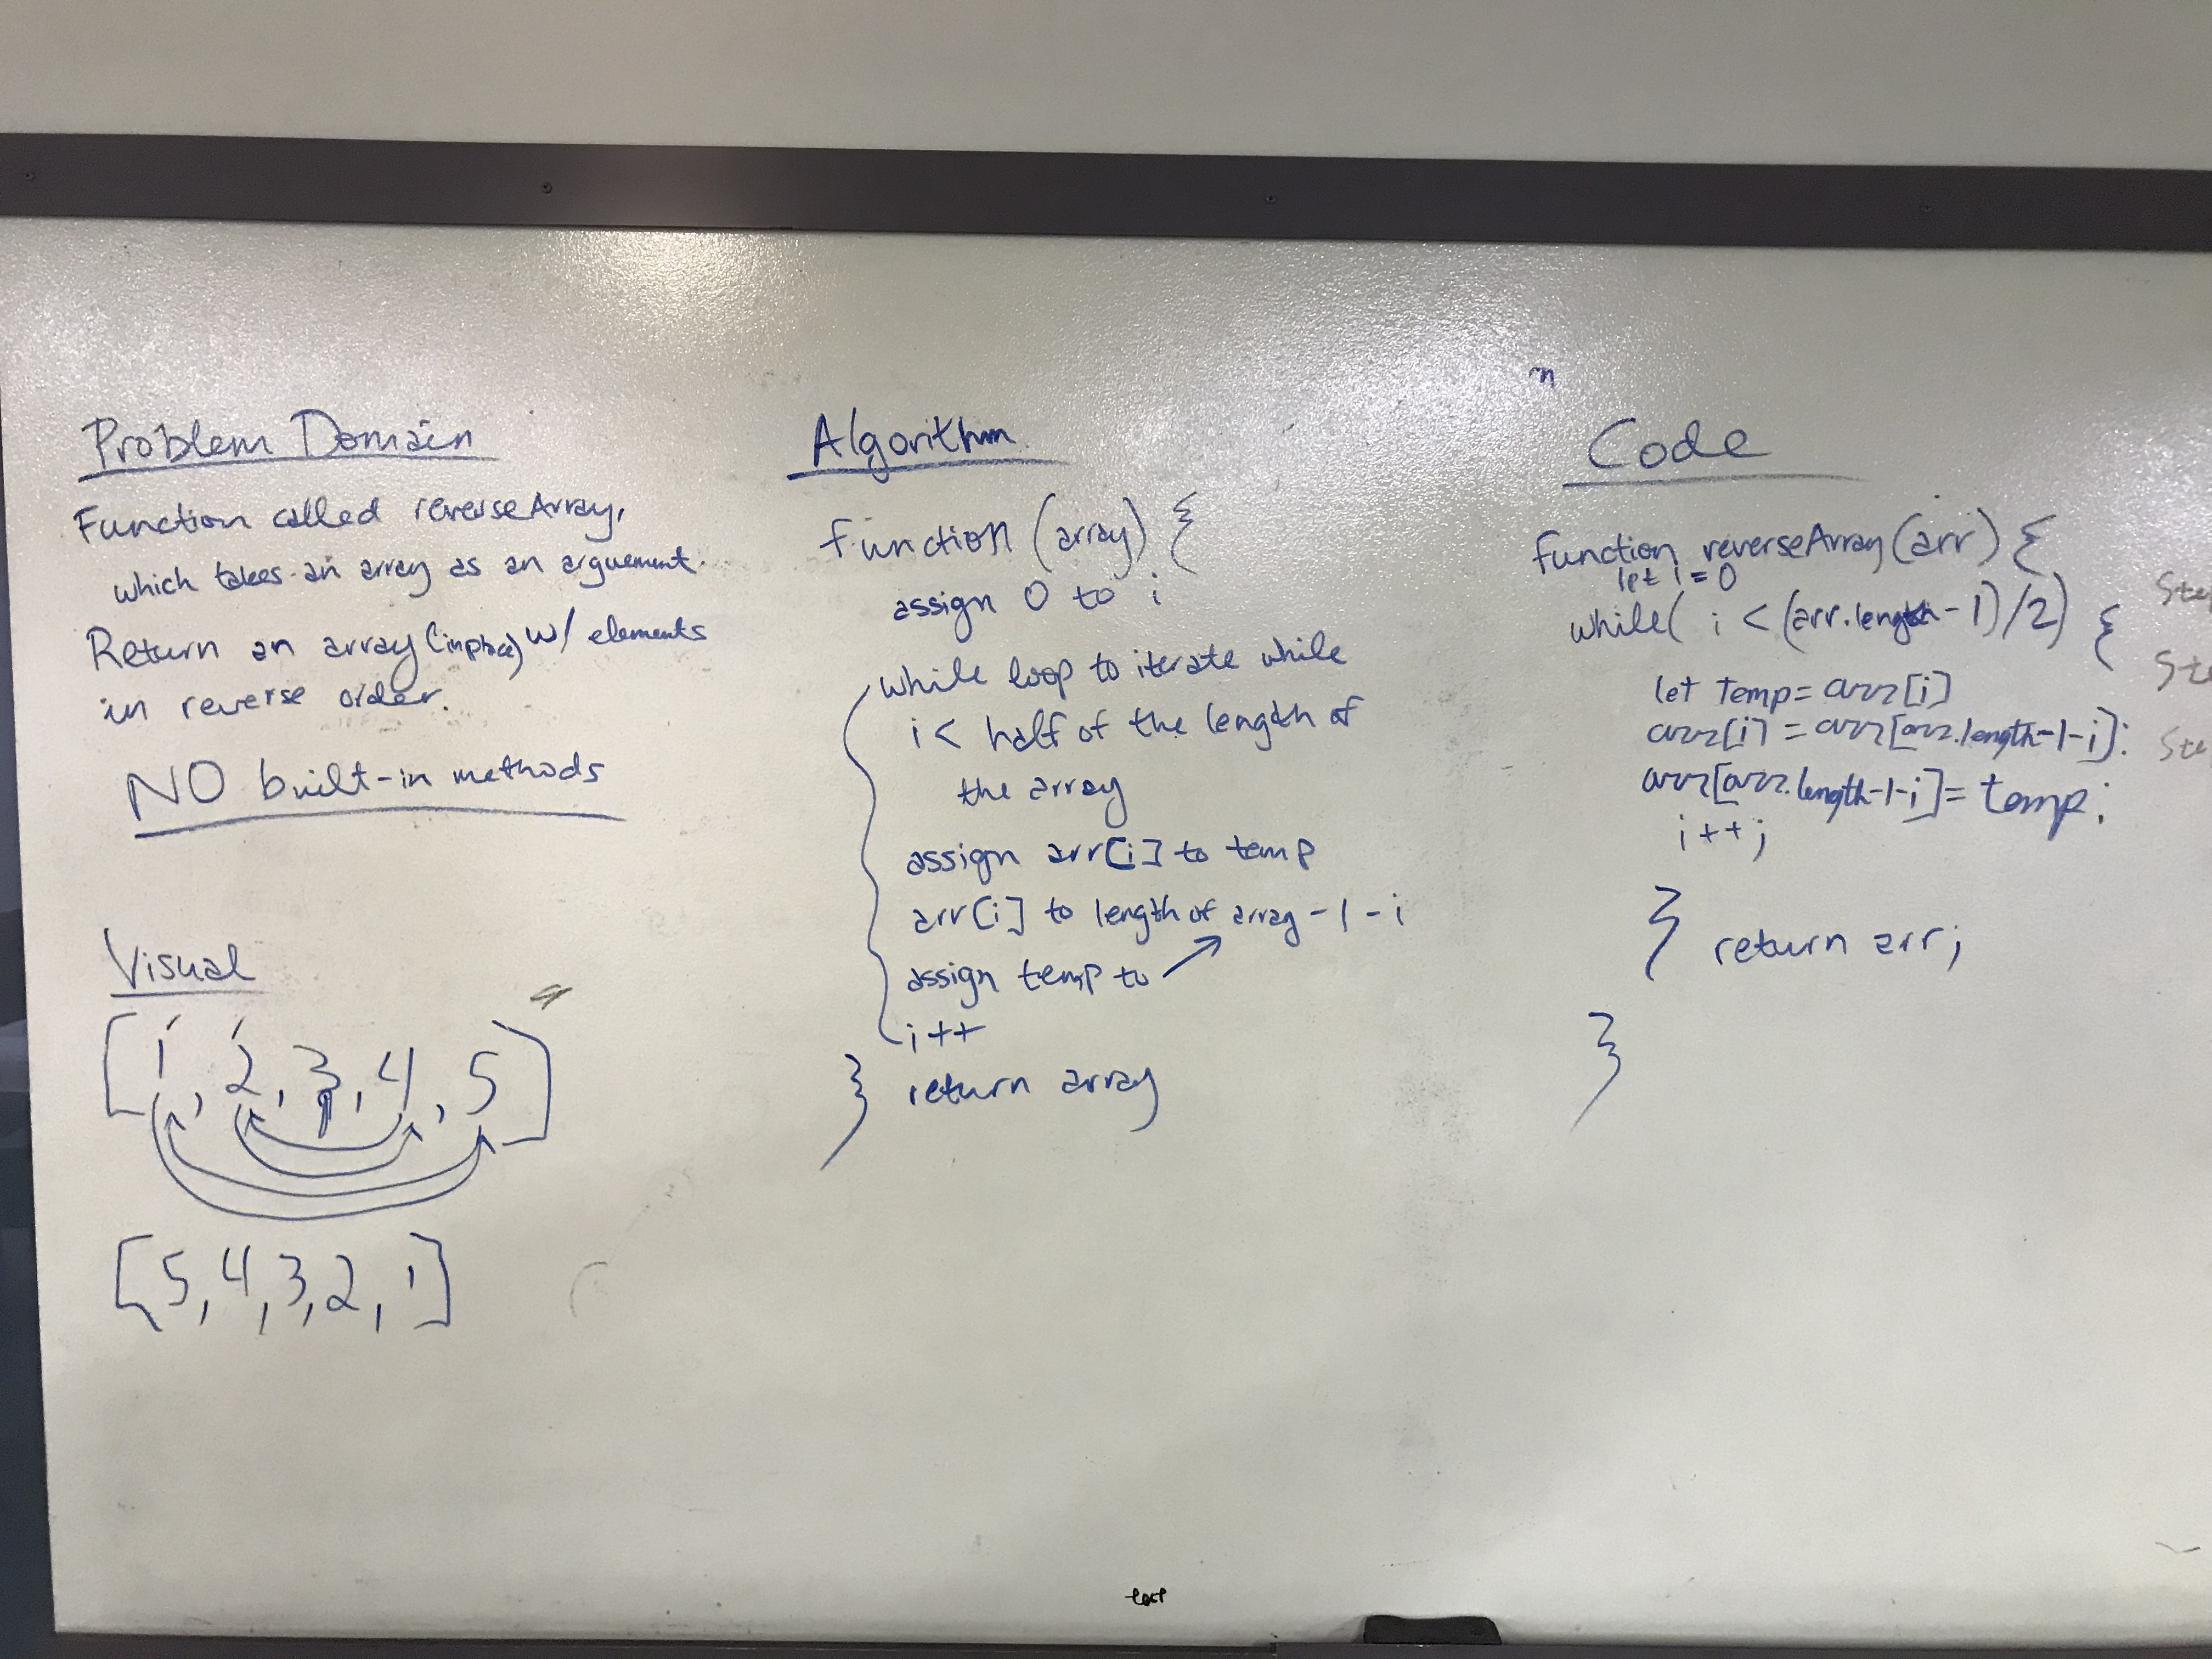 Problem Domain
Function called reverseArray,
which takes an array as an arguement.
Return an array (inplace) w/ elements
in reverse order.
NO built-in methods
Visual
[1, 2, 3, 4, 5]
[5, 4, 3, 2, 1]
Algorithm
function (array) {
assign 0 to i
while loop to iterate while
i < half of the length of
the array
assign arr[i] to temp
arr[i] to length of array -1 -i
assign temp to
i++
} return array
n
Code
function reverseArray(arr) {
let i = 0
while( i < (arr.length - 1)/2) {
let temp = arr[i]
arr[i] = arr[arr.length-1-i];
arr[arr.length-1-i] = temp;
i++;
} return arr;
}
Ste
Ste
Ste